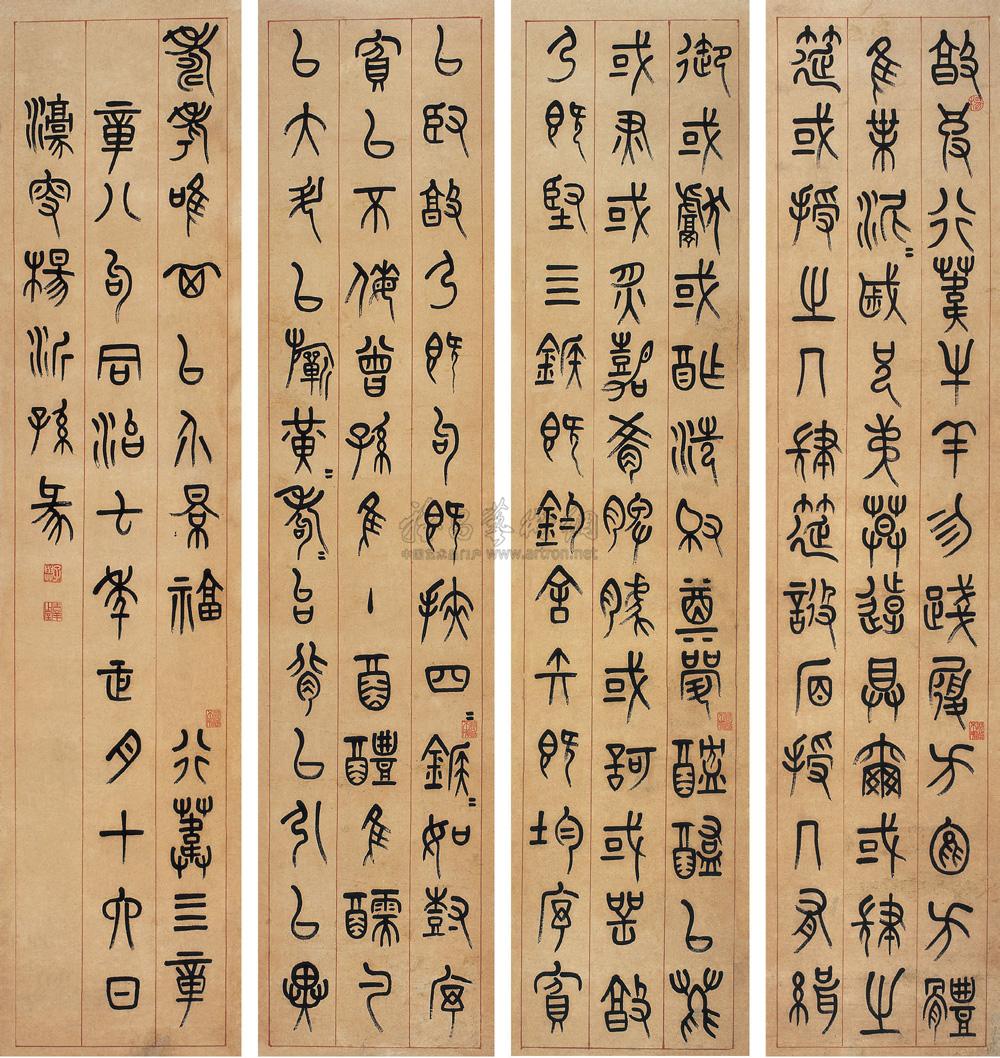 敦彼行葦牛羊勿踐履方苞方體
隹葉泥=戚兄弟莫遠具爾或肆之
筵或授之几肆筵設席授几有緝
御或獻或酢洗爵奠斝醓醢以薦
或燔或炙嘉肴脾臄或歌或咢敦
弓既堅三鍭既鈞舍矢既均序賓
以臤敦弓既句既挾四=鍭=如樹序
賓以不侮曾孫隹主酉醴隹醹勺
以大斗以祈黃=耇=台背以引以翼
壽考唯祺以介景福 行葦三章
章八句同治七年正月十六日
濠叟楊沂孫篆